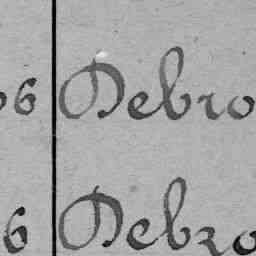 6 Debro
6 Debro